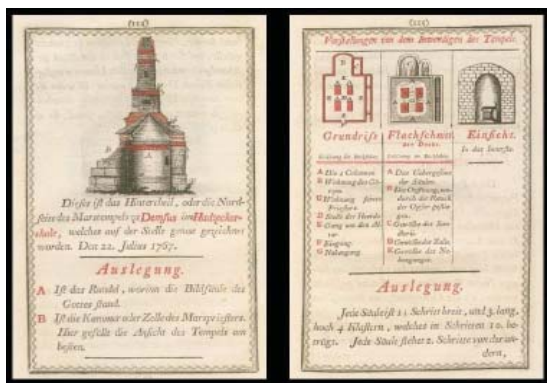 Dieses ist das Hintertheil, oder die Nord-
seite des Marstempels zu Demsus im Hatzeker-
thale, welches auf der Stelle genau gezeichnet
worden. Den 22. Julius 1767.
Auslegung.
A Ist das Rundel, worinn die Bildsäule des
Gottes stand.
B Ist die Kammer oder Zelle des Marspriesters.
Hier gefällt die Ansicht des Tempels am
besten.
Vorstellungen von dem Innwendigen des Tempels
Grundriss
Flachschnitt
der Decke.
Einsicht.
In das Innerste.
A Die 4 Colonnen
B Wohnung des Gö-
tzen
C Wohnung seiner
Priesters
D Stelle des Heerds
E Gang um den Al-
tar
F Eingang
G Nebengang.
der Säulen.
B Die Oeffnung, wo-
durch der Rauch
der Opfer gestie-
gen.
C Gewölbe des San-
D Gewölbe
E Gewölbe der Ne-
bengangen.
Auslegung.
Jede Säule ist 11 Schritt breit, und 3. lang,
hoch 4 Klaftern, welches in Schritten 10. be-
trägt. Jede Säule stehet 2. Schritte von der an-
dern,